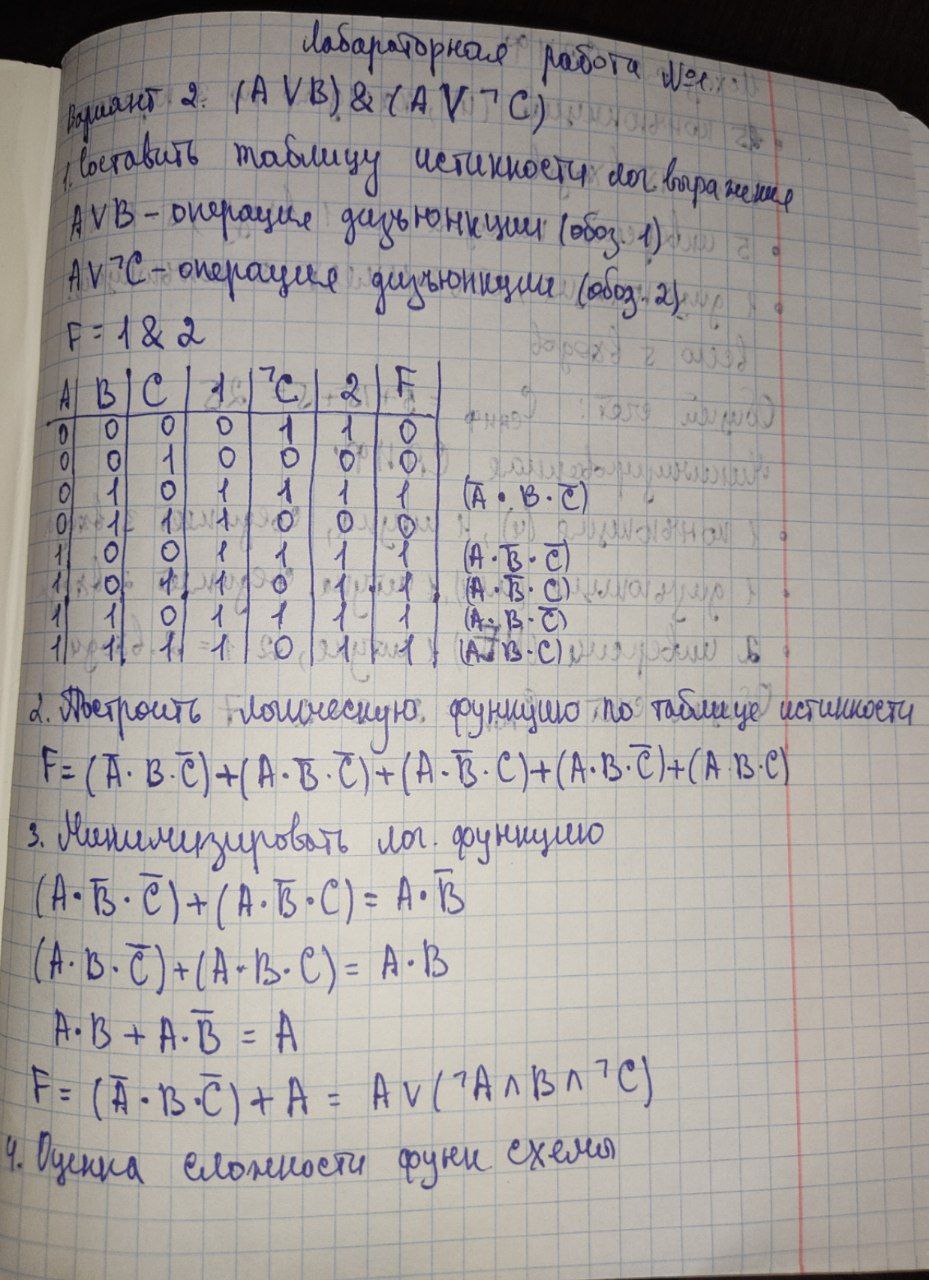 Лабараторная работа №1.
Вариант 2. (A V B) & (A V ¬C)
1. Составить таблицу истинности лог. выражения
AVB - операция дизъюнкции (обоз. 1)
AV¬C - операция дизъюнкции (обоз. 2)
F = 1 & 2
A B C 1 ¬C 2 F
0 0 0 0 1 1 0
0 0 1 0 0 0 0
0 1 0 1 1 1 1 (A̅ · B · C̅)
0 1 1 1 0 0 0
1 0 0 1 1 1 1 (A · B̅ · C̅)
1 0 1 1 0 1 1 (A · B̅ · C)
1 1 0 1 1 1 1 (A · B · C̅)
1 1 1 1 0 1 1 (A · B · C)
2. Построить логическую функцию по таблице истинности
F = (A̅ · B · C̅) + (A · B̅ · C̅) + (A · B̅ · C) + (A · B · C̅) + (A · B · C)
3. Минимизировать лог. функцию
(A · B̅ · C̅) + (A · B̅ · C) = A · B̅
(A · B · C̅) + (A · B · C) = A · B
A · B + A · B̅ = A
F = (A̅ · B · C̅) + A = A V (¬A ∧ B ∧ ¬C)
4. Оценка сложности функ схемы